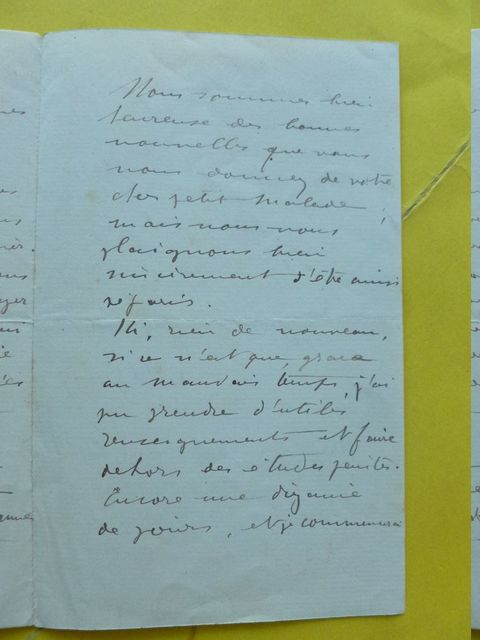 Nous sommes bien
heureuse des bonnes
nouvelles que vous
nous donnez de votre
cher petit malade ;
mais nous vous
plaignons bien
sincèrement d'être ainsi
séparés.
Ici, rien de nouveau,
si ce n'est que, grace
au mauvais temps, j'ai
pu prendre d'utiles
renseignements et faire
dehors des études peintes.
Encore une dizaine
de jours, et je commencerai